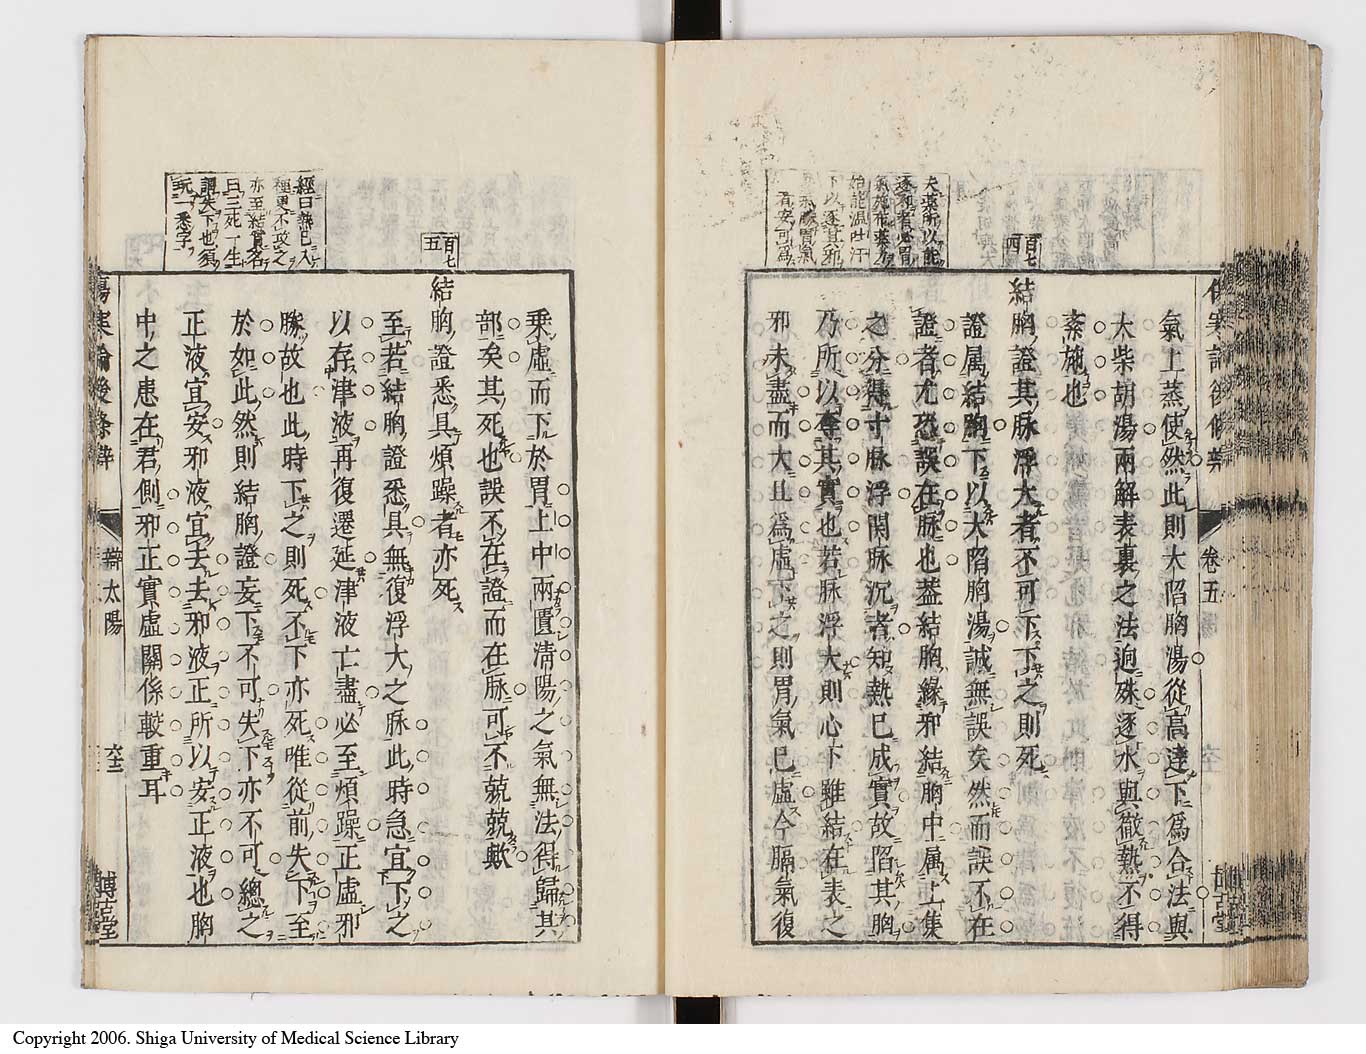 夫藥所以能
逐邪者必胃
氣施布藥力
始能溫吐汗
下以逐其邪
邪氣勝胃氣
有安可爲
百七
四
氣上蒸使然此則大陷胸湯從高達下爲合法與
大柴胡湯兩解表裏之法逈殊逐水與徹熱不得
紊施也
結胸證其脉浮大者不可下下之則死
證属結胸下以大陷胸湯誠無誤矣然而誤不在
證者尤恐誤在脉也蓋結胸緣邪結胸中属上集
之分得寸脉浮関脉沉者知熱已成實故陷其胸
乃所以奪其實也若脉浮大則心下雖結在表之
邪未盡而大且爲虛下之則胃氣已虛今膈氣復
卷五
博古堂
百七
五
經曰熱已入
裡更不攻之
亦至結實名
曰三死一生
謂失下也須
玩一悉字
乘虛而下於胃上中兩匱清陽之氣無法得歸其
部矣其死也誤不在證而在脉可不兢兢歟
結胸證悉具煩躁者亦死
至若結胸證悉具無復浮大之脉此時急宜下之
以存津液再復遷延津液亡盡必至煩躁正虛邪
勝故也此時下之則死不下亦死唯從前失下至
於如此然則結胸證妄下不可失下亦不可總之
正液宜安邪液宜去去邪液正所以安正液也胸
中之患在君側邪正實虛關係較重耳
傷寒論後條辨
辯太陽
六十二
博古堂
Copyright 2006. Shiga University of Medical Science Library